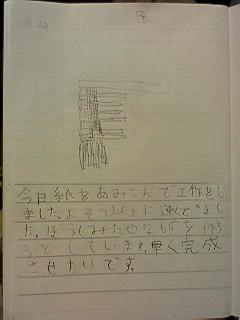 今日紙をあみこんで工作をし
ました。よそう以上に速くできまし
た。ぼうしみたいなものを作ろ
うとしています。早く完成
させたいです。